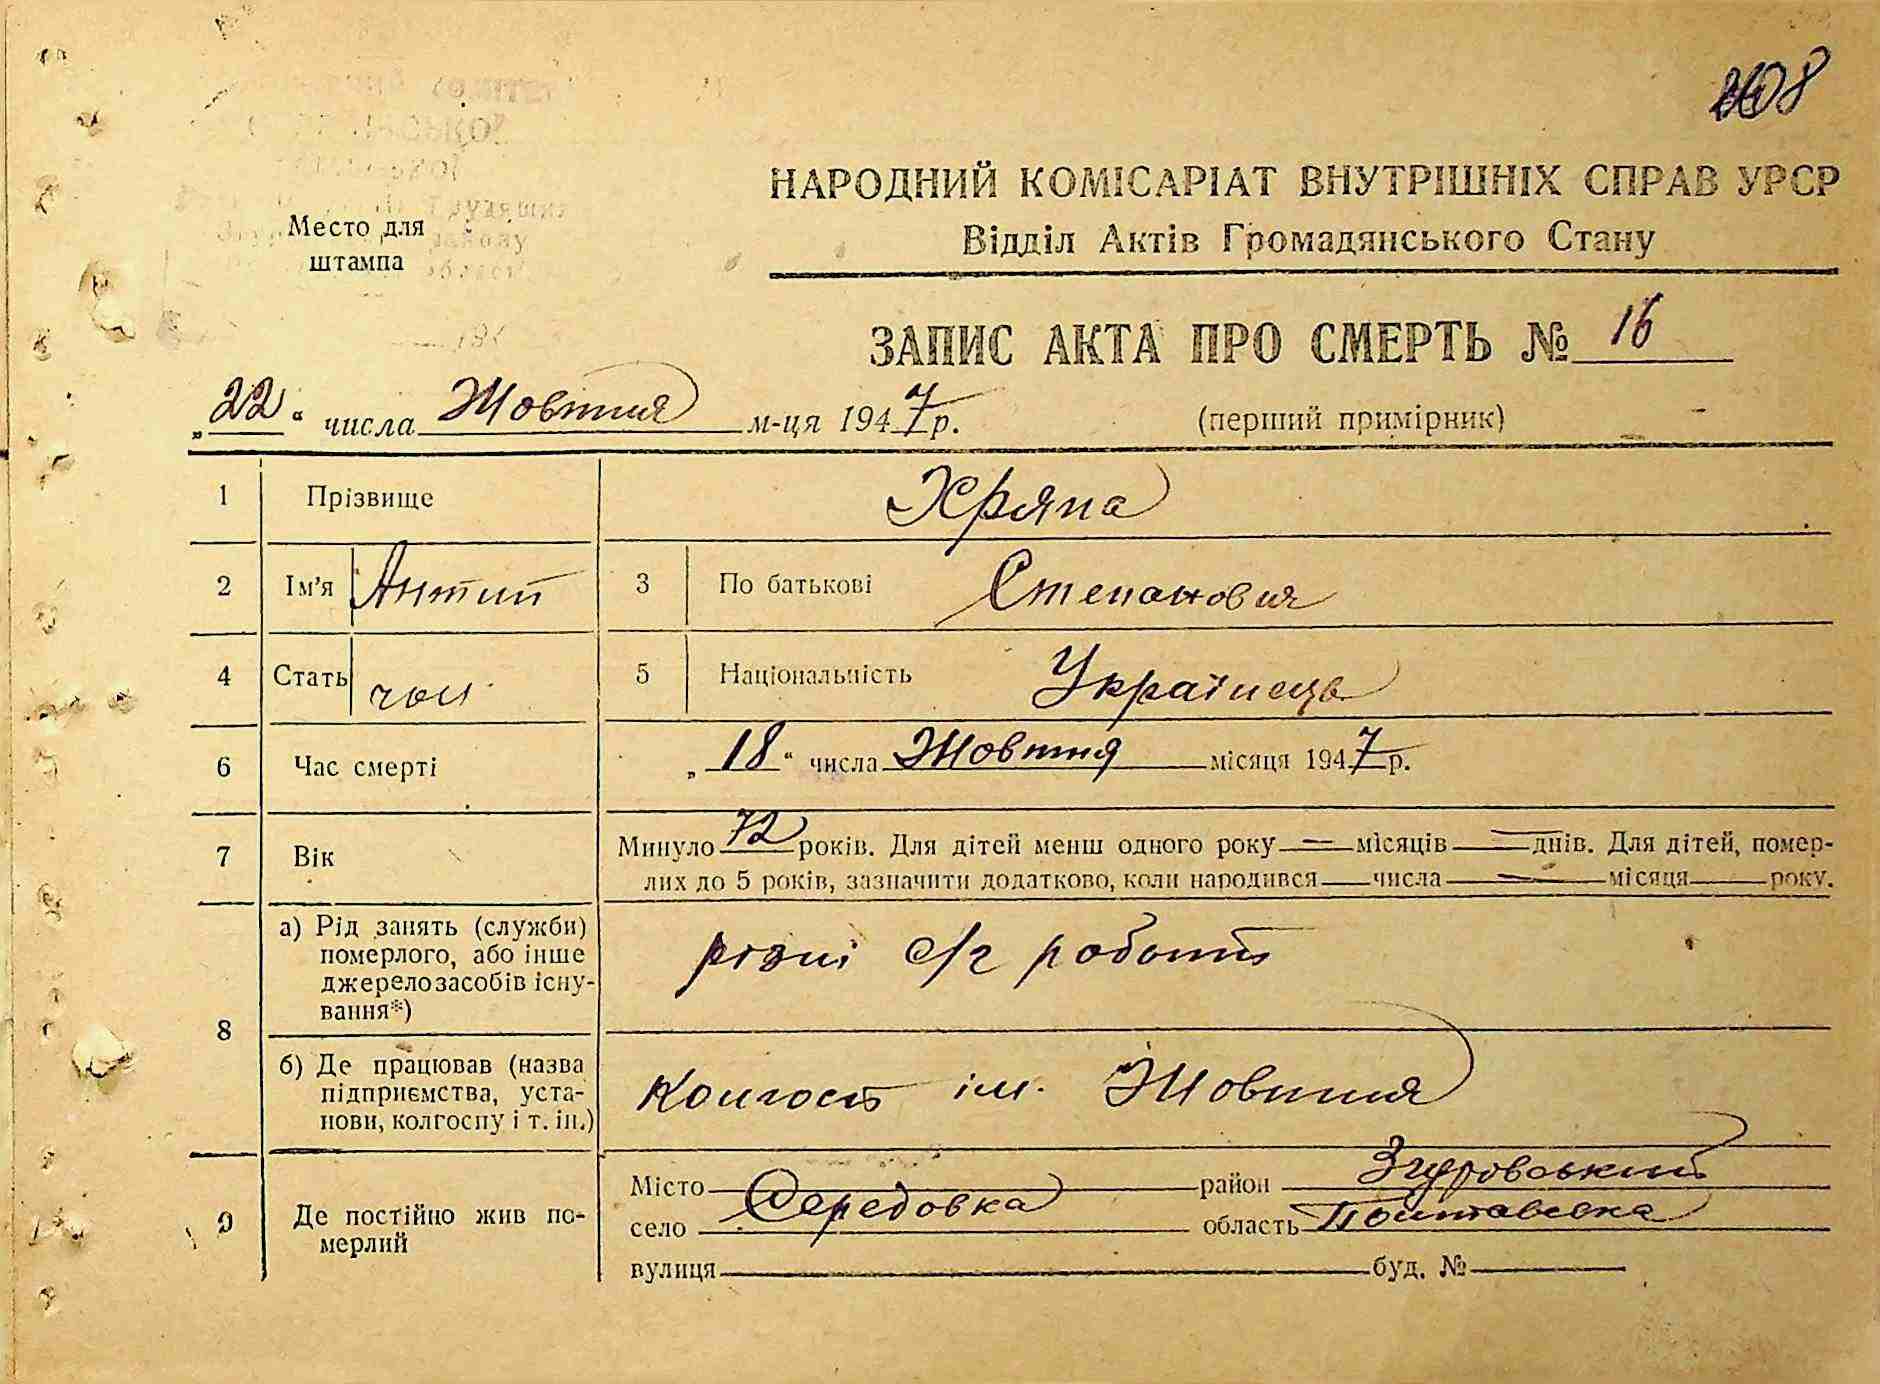 208
НАРОДНИЙ КОМІСАРІАТ ВНУТРІШНІХ СПРАВ УРСР
Відділ Актів Громадянського Стану
Место для
штампа
ЗАПИС АКТА ПРО СМЕРТЬ № 16
„22“ числа Жовтня м-ця 1947 р. (перший примірник)
1 Прізвище Хряпа
2 Ім'я Антип 3 По батькові Степанович
4 Стать чол 5 Національність Українець
6 Час смерті „18“ числа Жовтня місяця 1947 р.
7 Вік Минуло 72 років. Для дітей менш одного року — місяців — днів. Для дітей, помер-
лих до 5 років, зазначити додатково, коли народився — числа — місяця — року.
8 а) Рід занять (служби)
померлого, або інше
джерело засобів існу-
вання*)
різні с/г роботи
б) Де працював (назва
підприємства, уста-
нови, колгоспу і т. ін.)
Колгосп ім. Жовтня
9 Де постійно жив по-
мерлий
Місто район Згуровський
село Середовка область Полтавська
вулиця буд. №